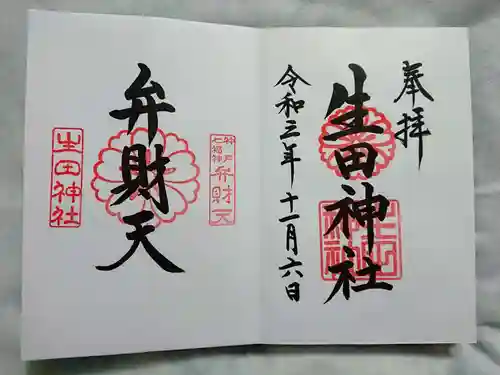 奉拝
生田神社
生田神社
令和三年十一月六日
神戸
七福神
弁財天
弁財天
生田神社